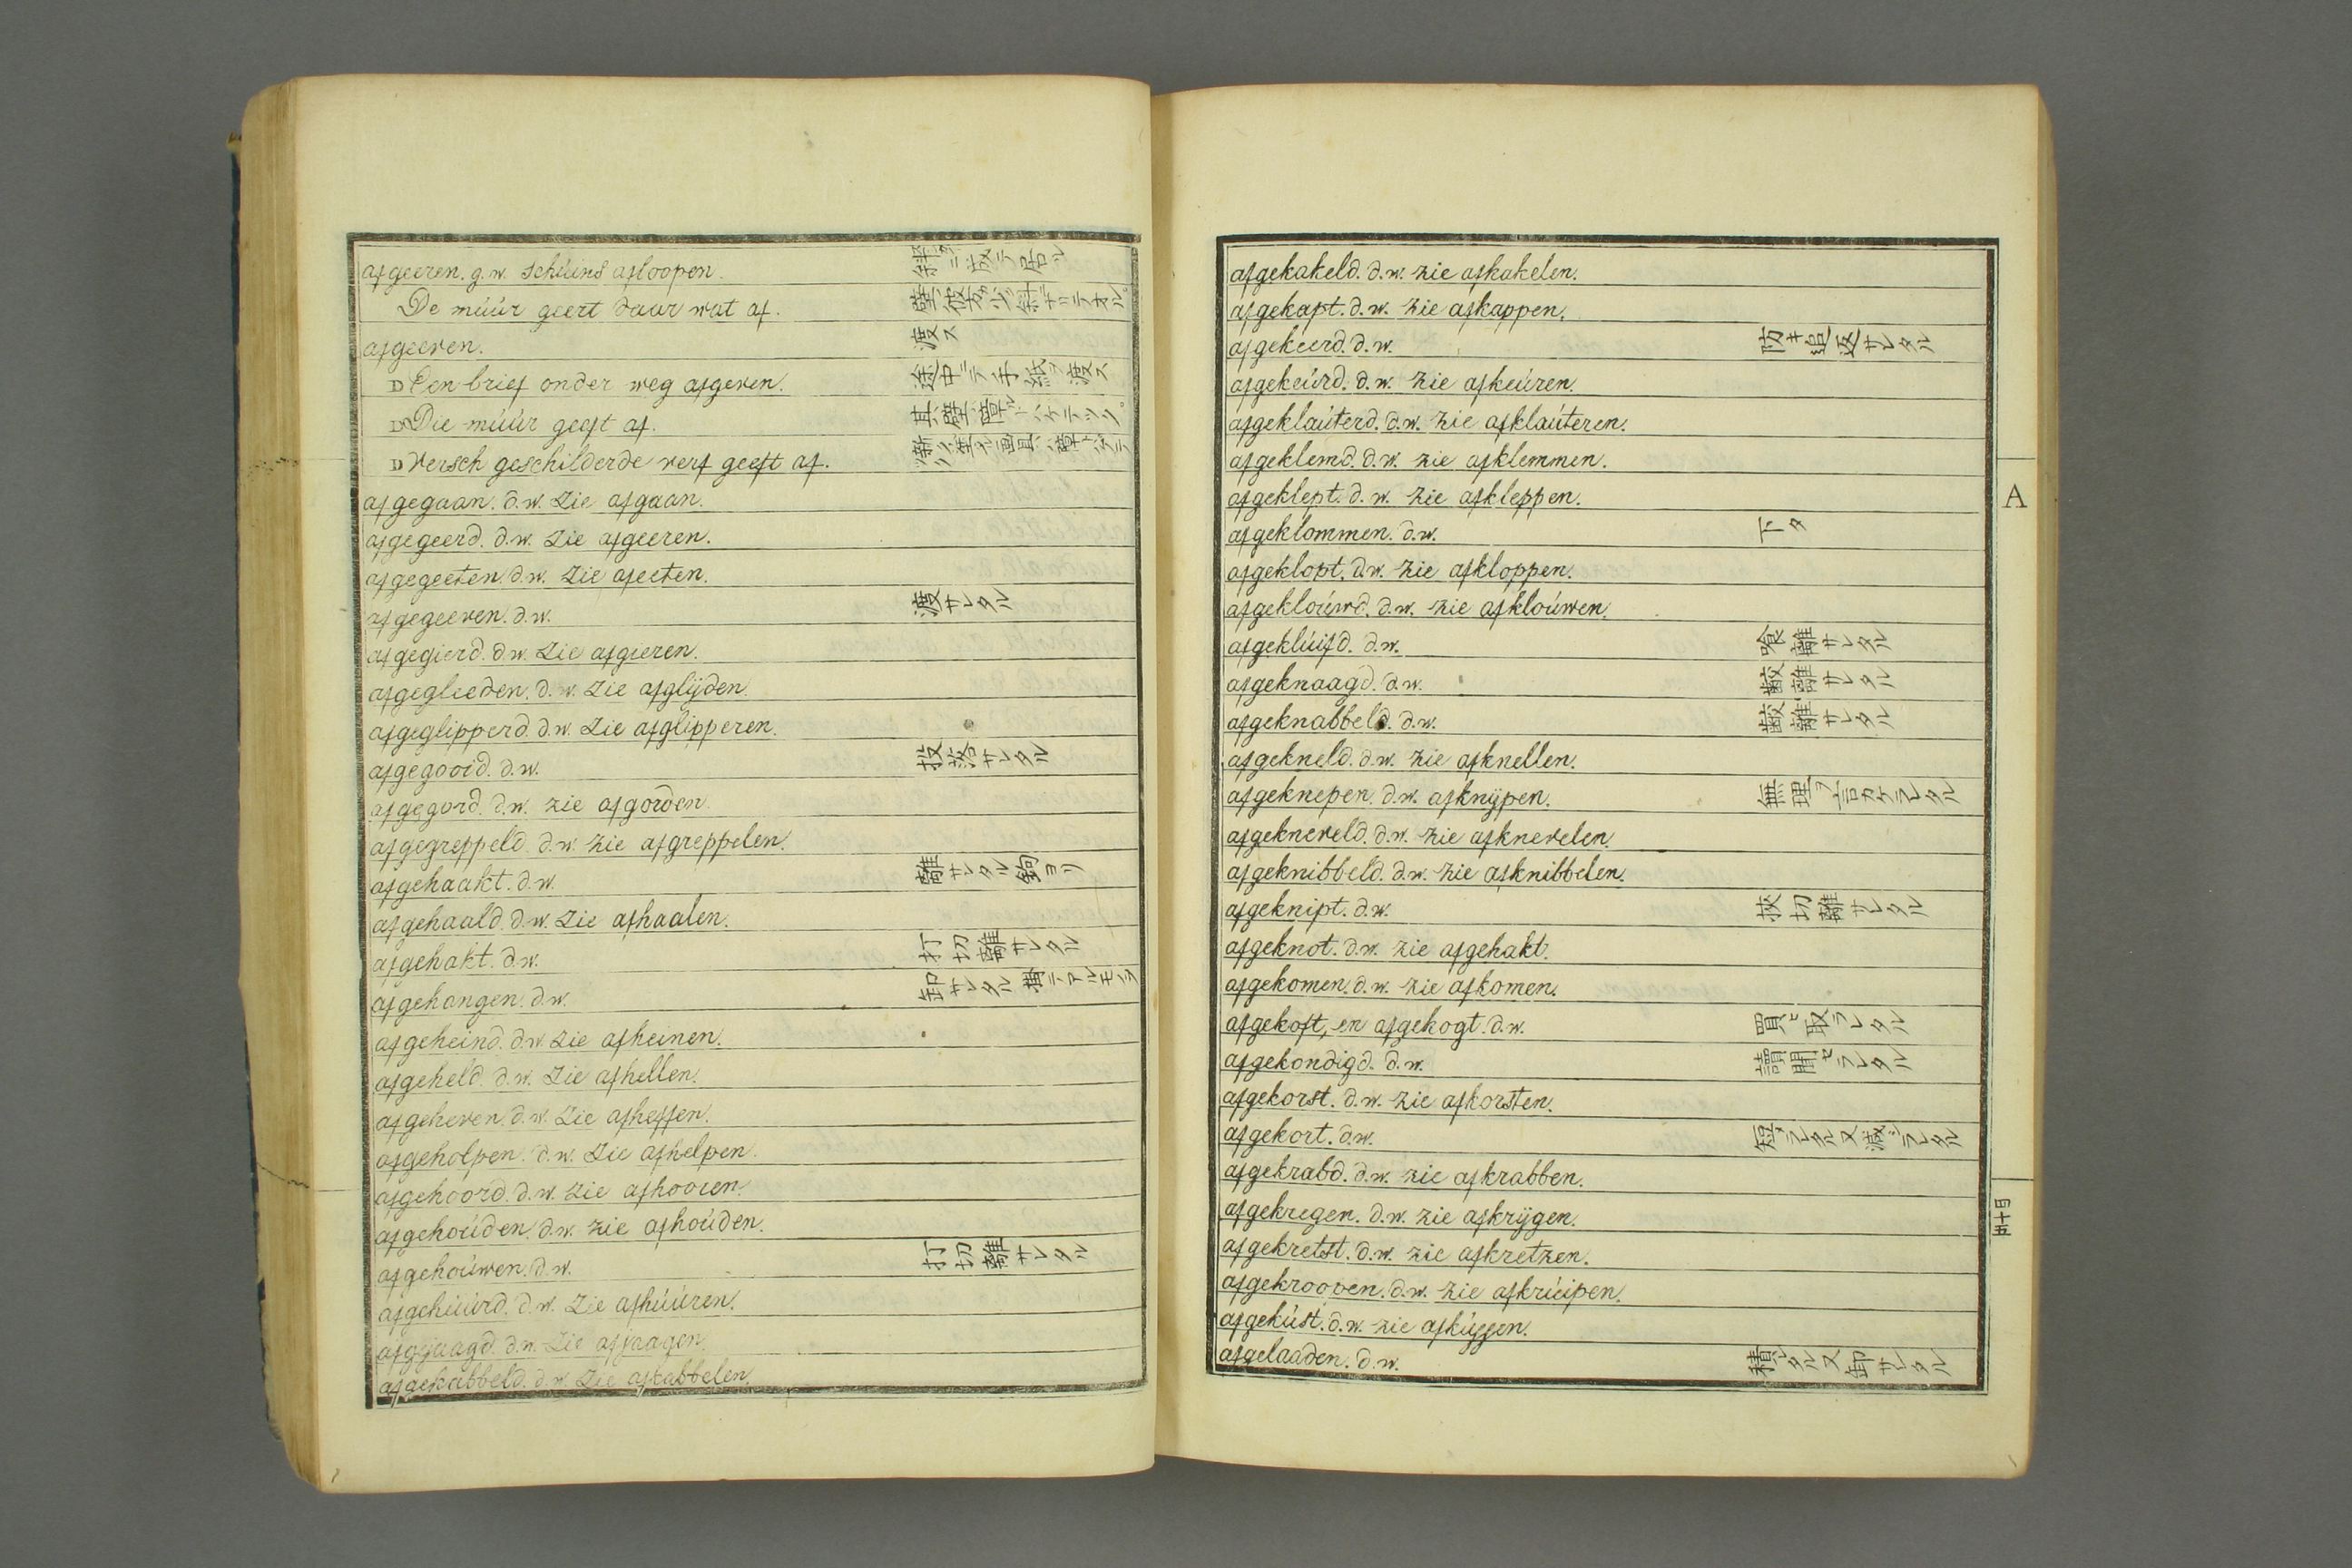 afgeeren. g.w. schúins afloopen. 斜ニ成テ居ル
De múúr geert daar wat af. 壁ガ彼方ガ少シ斜ナリテオル。
afgeeven. 渡ス
D Een brief onder weg afgeven. 途中ニテ手紙ヲ渡ス
D Die múúr geeft af.
D Versch geschilderde verf geeft af.
afgegaan. d.w. Zie afgaan.
afgegeerd. d.w. Zie afgeeren.
afgegeeten. d.w. Zie afeeten.
afgegeeven. d.w. 渡サレタル
afgegierd. d.w. Zie afgieren.
afgegleeden. d.w. Zie afglijden.
afgeglipperd. d.w. Zie afglipperen.
afgegooid. d.w. 投落サレタル
afgegord. d.w. zie afgorden.
afgegreppeld. d.w. zie afgreppelen.
afgehaakt. d.w. 離サレタル鉤ヨリ
afgehaald. d.w. Zie afhaalen.
afgehakt. d.w. 打切離サレタル
afgehangen. d.w. 卸サレタル 掛テアルモノヲ
afgeheind. d.w. Zie afheinen.
afgeheld. d.w. Zie afhellen.
afgeheven. d.w. Zie afheffen.
afgeholpen. d.w. Zie afhelpen.
afgehoord. d.w. Zie afhooren.
afgehoúden. d.w. zie afhoúden.
afgehoúwen. d.w. 打切離サレタル
afgehúúrd. d.w. Zie afhúúren.
afgejaagd. d.w. Zie afjaagen.
afgekabbeld. d.w. Zie afkabbelen.
afgekakeld. d.w. zie afkakelen.
afgekapt. d.w. zie afkappen.
afgekeerd. d.w. 防キ追返サレタル
afgekeúrd. d.w. zie afkeúren.
afgeklaúterd. d.w. zie afklaúteren.
afgeklemd. d.w. zie afklemmen.
afgeklept. d.w. zie afkleppen.
A
afgeklommen. d.w. 下タ
afgeklopt. d.w. zie afkloppen.
afgekloúwd. d.w. zie afkloúwen.
afgeklúifd. d.w. 喰離サレタル
afgeknaagd. d.w. 齩離サレタル
afgeknabbeld. d.w. 齩離サレタル
afgekneld. d.w. zie afknellen.
afgeknepen. d.w. afknijpen. 無理ヲ言カケラレタル
afgekneveld. d.w. zie afknevelen.
afgeknibbeld. d.w. zie afknibbelen.
afgeknipt. d.w. 挾切離サレタル
afgeknot. d.w. zie afgehakt.
afgekomen. d.w. zie afkomen.
afgekoft, en afgekogt. d.w. 買ヒ取ラレタル
afgekondigd. d.w. 讀聞セラレタル
afgekorst. d.w. zie afkorsten.
afgekort. d.w. 短メラレタル又減シラレタル
afgekrabd. d.w. zie afkrabben.
afgekregen. d.w. zie afkrijgen.
五十四
afgekretst. d.w. zie afkretzen.
afgekroopen. d.w. zie afkrúipen.
afgekúst. d.w. zie afkússen.
afgelaaden. d.w. 積レタル又卸サレタル